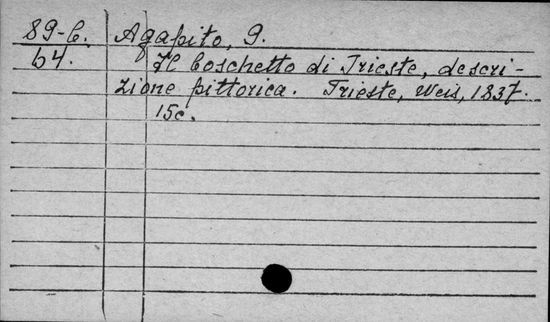 89-b. Agapito, G.
64. Il boschetto di Trieste, descri-
zione pittorica. Trieste, Weis, 1837.
15c.